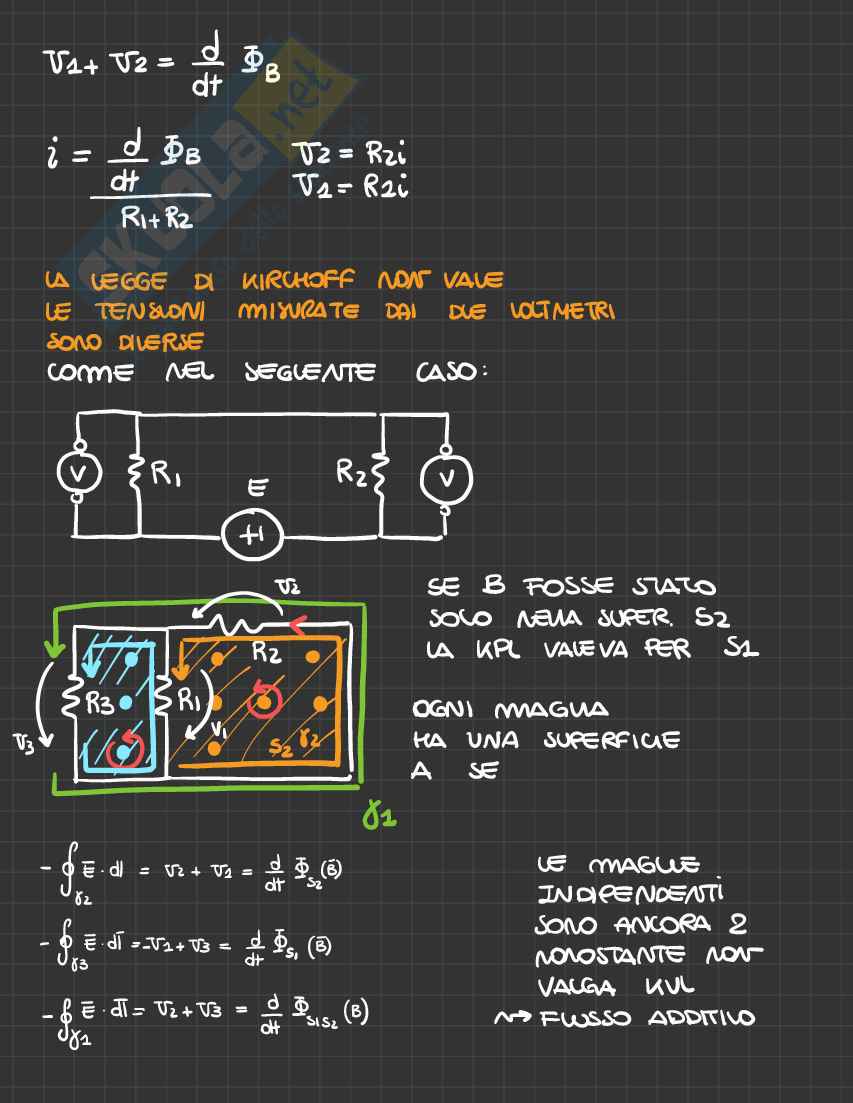 V1 + V2 = d/dt ΦB
i = d/dt ΦB / R1+R2
V2 = R2i
V1 = R1i
LA LEGGE DI KIRCHOFF NON VALE
LE TENSIONI MISURATE DAI DUE VOLTMETRI
SONO DIVERSE
COME NEL SEGUENTE CASO:
V R1 E R2 V
+
V2
R2
R3 R1
V3 V1 S2 γ2
γ1
SE B FOSSE STATO
SOLO NELLA SUPER. S2
LA KPL VALEVA PER S1
OGNI MAGLIA
HA UNA SUPERFICIE
A SE
-∮γ2 Ē · dl = V2 + V1 = d/dt ΦS2 (B̄)
-∮γ3 Ē · dl̄ = -V1 + V3 = d/dt ΦS1 (B̄)
-∮γ1 Ē · dl̄ = V2 + V3 = d/dt ΦS1S2 (B)
LE MAGLIE
INDIPENDENTI
SONO ANCORA 2
NONOSTANTE NON
VALGA KVL
⇝ FLUSSO ADDITIVO
SKUOLA.net